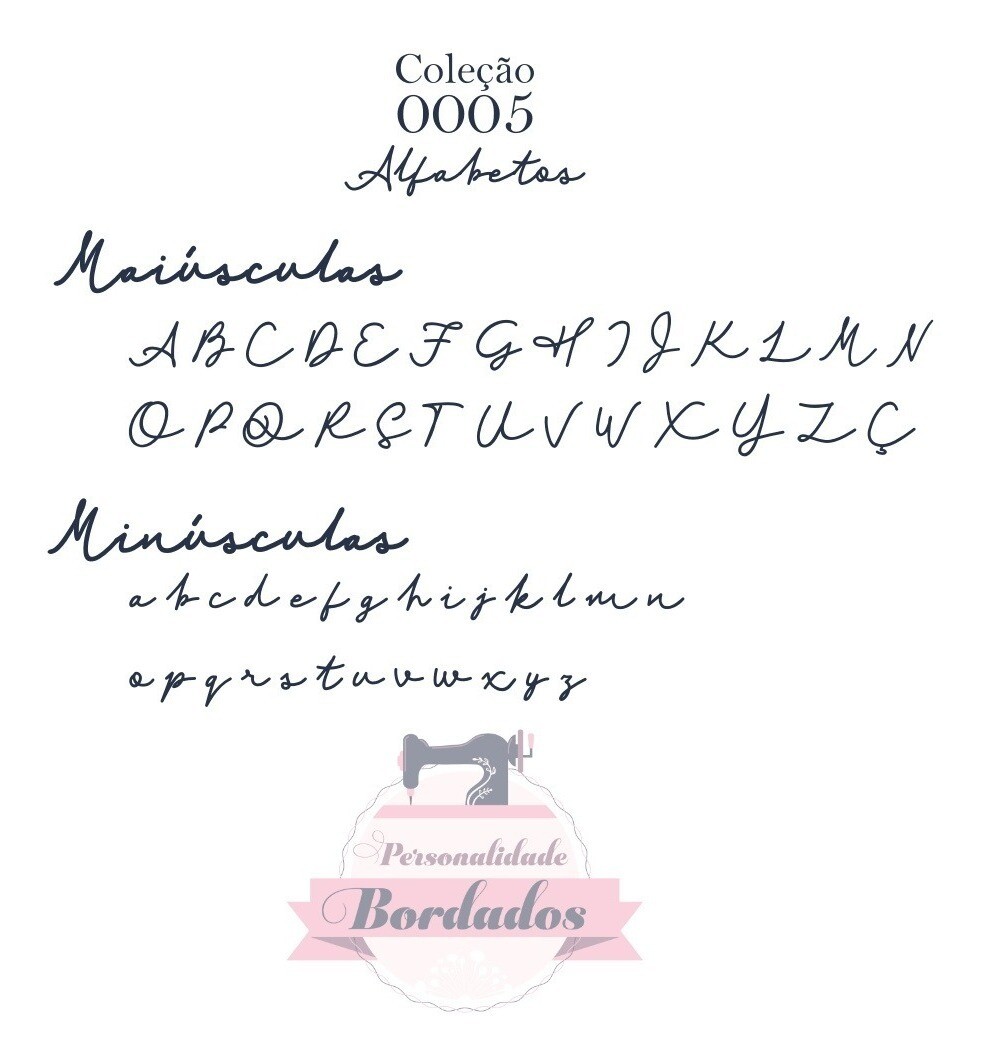 Coleção
0005
Alfabetos
Maiúsculas
A B C D E F G H I J K L M N
O P Q R S T U V W X Y Z Ç
Minúsculas
a b c d e f g h i j k l m n
o p q r s t u v w x y z
Personalidade
Bordados